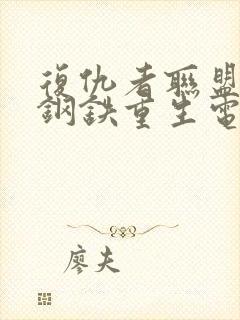 復仇者聯盟
鋼鉄重生電
廖夫